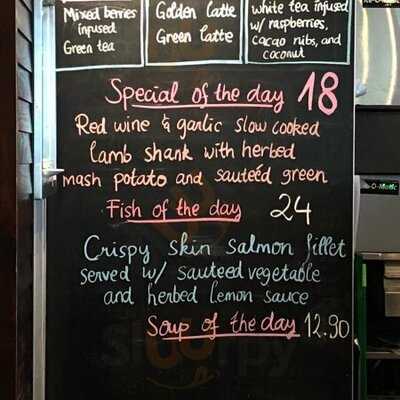 Mixed berries
infused
Green tea
Golden latte
Green latte
white tea infused
w/ raspberries,
cacao nibs, and
coconut
Special of the day 18
Red wine & garlic slow cooked
lamb shank with herbed
mash potato and sauteéd green
Fish of the day 24
Crispy skin salmon fillet
served w/ sauteed vegetable
and herbed lemon sauce
Soup of the day 12.90
sluurpy